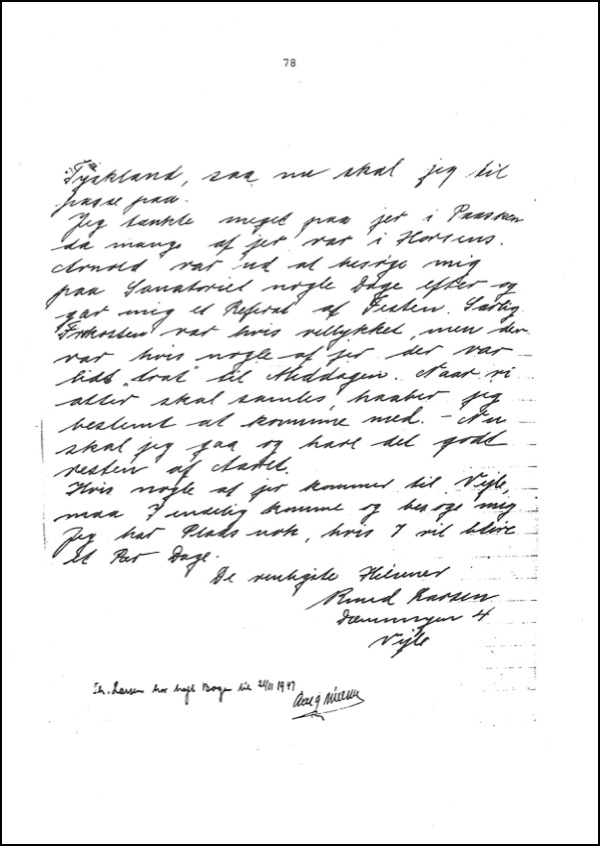 78
Tyskland, saa nu skal jeg til
passe paa.
Jeg tænkte meget paa jer i Paasken
da mange af jer var i Horsens.
Arnold var ud at besøge mig
paa Sanatoriet nogle Dage efter og
gav mig et Referat af Festen. Særlig
Frokosten var hvis vellykket, men der
var hvis nogle af jer der var
lidt "træt" til Middagen. Naar vi
atter skal samles, haaber jeg
bestemt at komme med. - Nu
skal jeg gaa og have det godt
resten af Aaret.
Hvis nogle af jer kommer til Vejle,
maa I endelig komme og besøge mig
Jeg har Plads nok, hvis I vil blive
et Par Dage.
De venligste Hilsener
Larsen
Dæmningen 4
Vejle
Larsen har haft Bogen til 1947